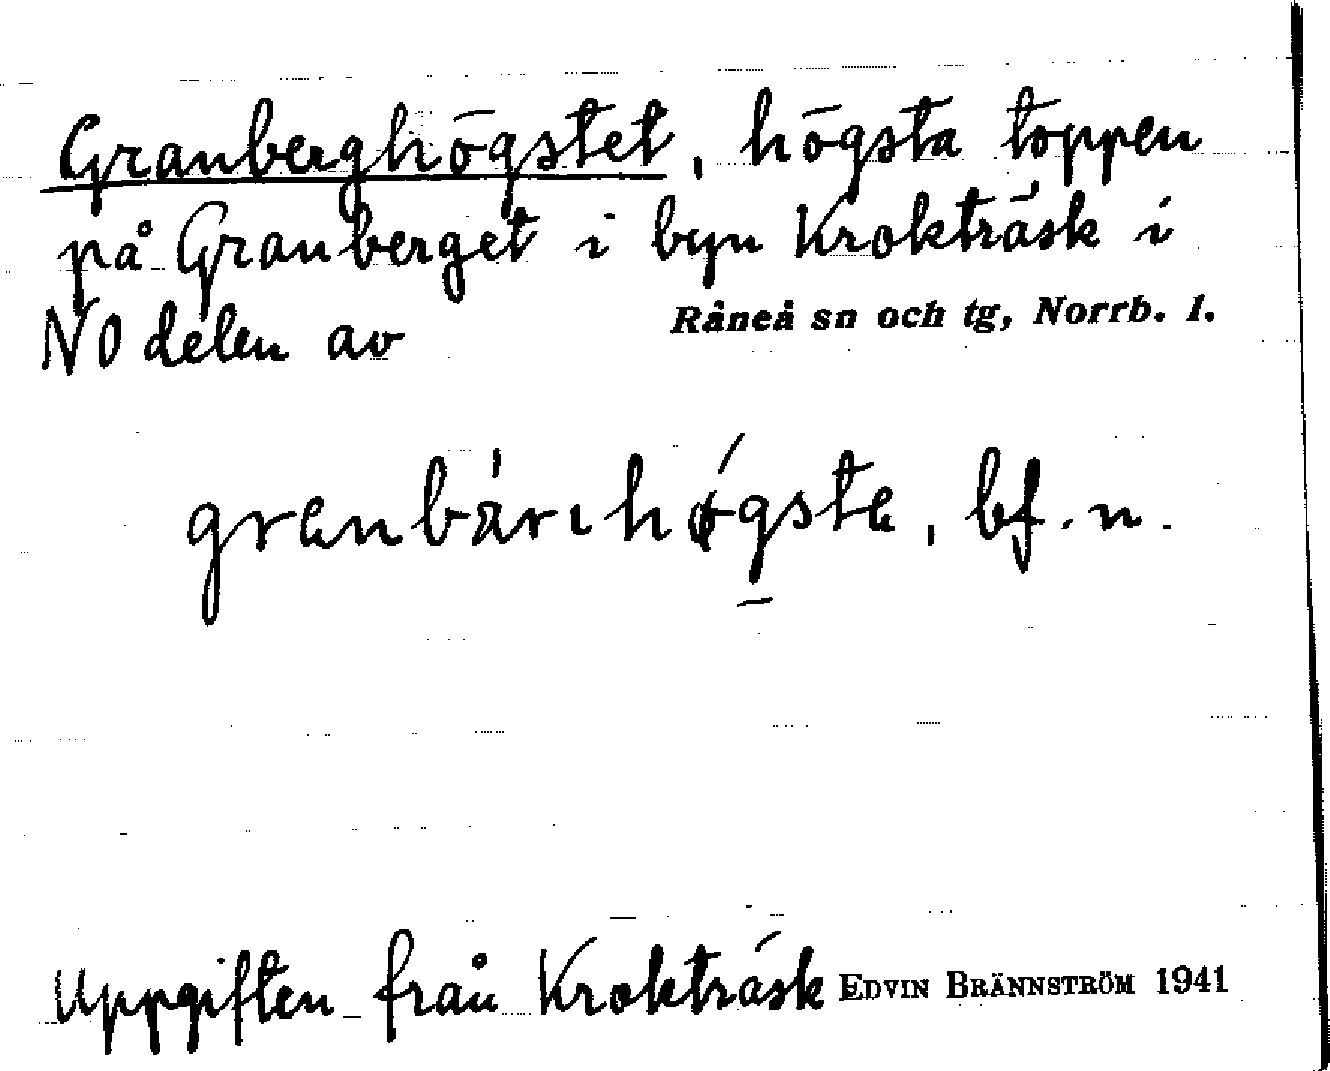 Granberghögstet, högsta toppen
på Granberget i byn Kroktråsk i
NO delen av Råneå sn och tg, Norrb. l.
granbärıhøgsta, bf. n.
Uppgiften från Kroktråsk EDVIN BRÄNNSTRÖM 1941